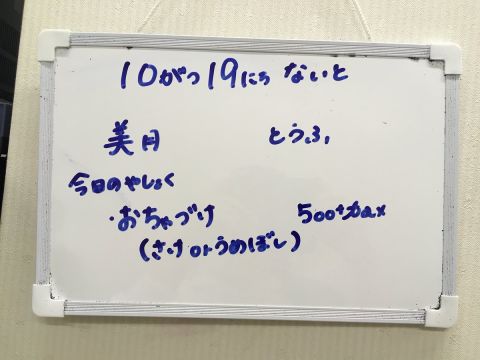 10がつ19にち ないと
美月 とうふ
今日のやしょく
・おちゃづけ 500+tax
(さけorうめぼし)